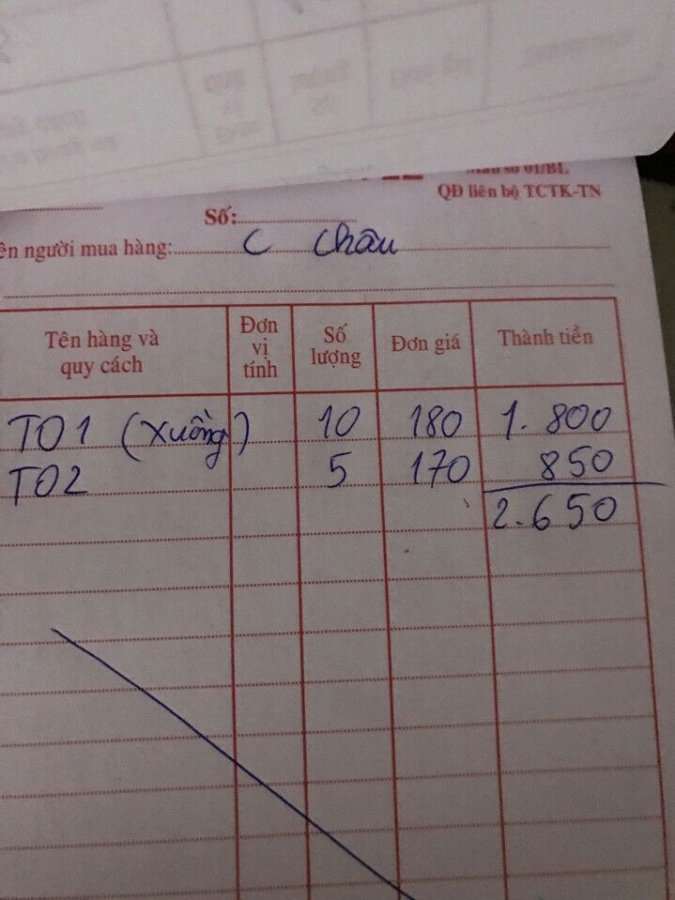 Mẫu số 01/BL
QĐ liên bộ TCTK-TN
Số:
ên người mua hàng: C Châu
Tên hàng và quy cách Đơn vị tính Số lượng Đơn giá Thành tiền
TO1 (xuồng) 10 180 1.800
TO2 5 170 850
2.650